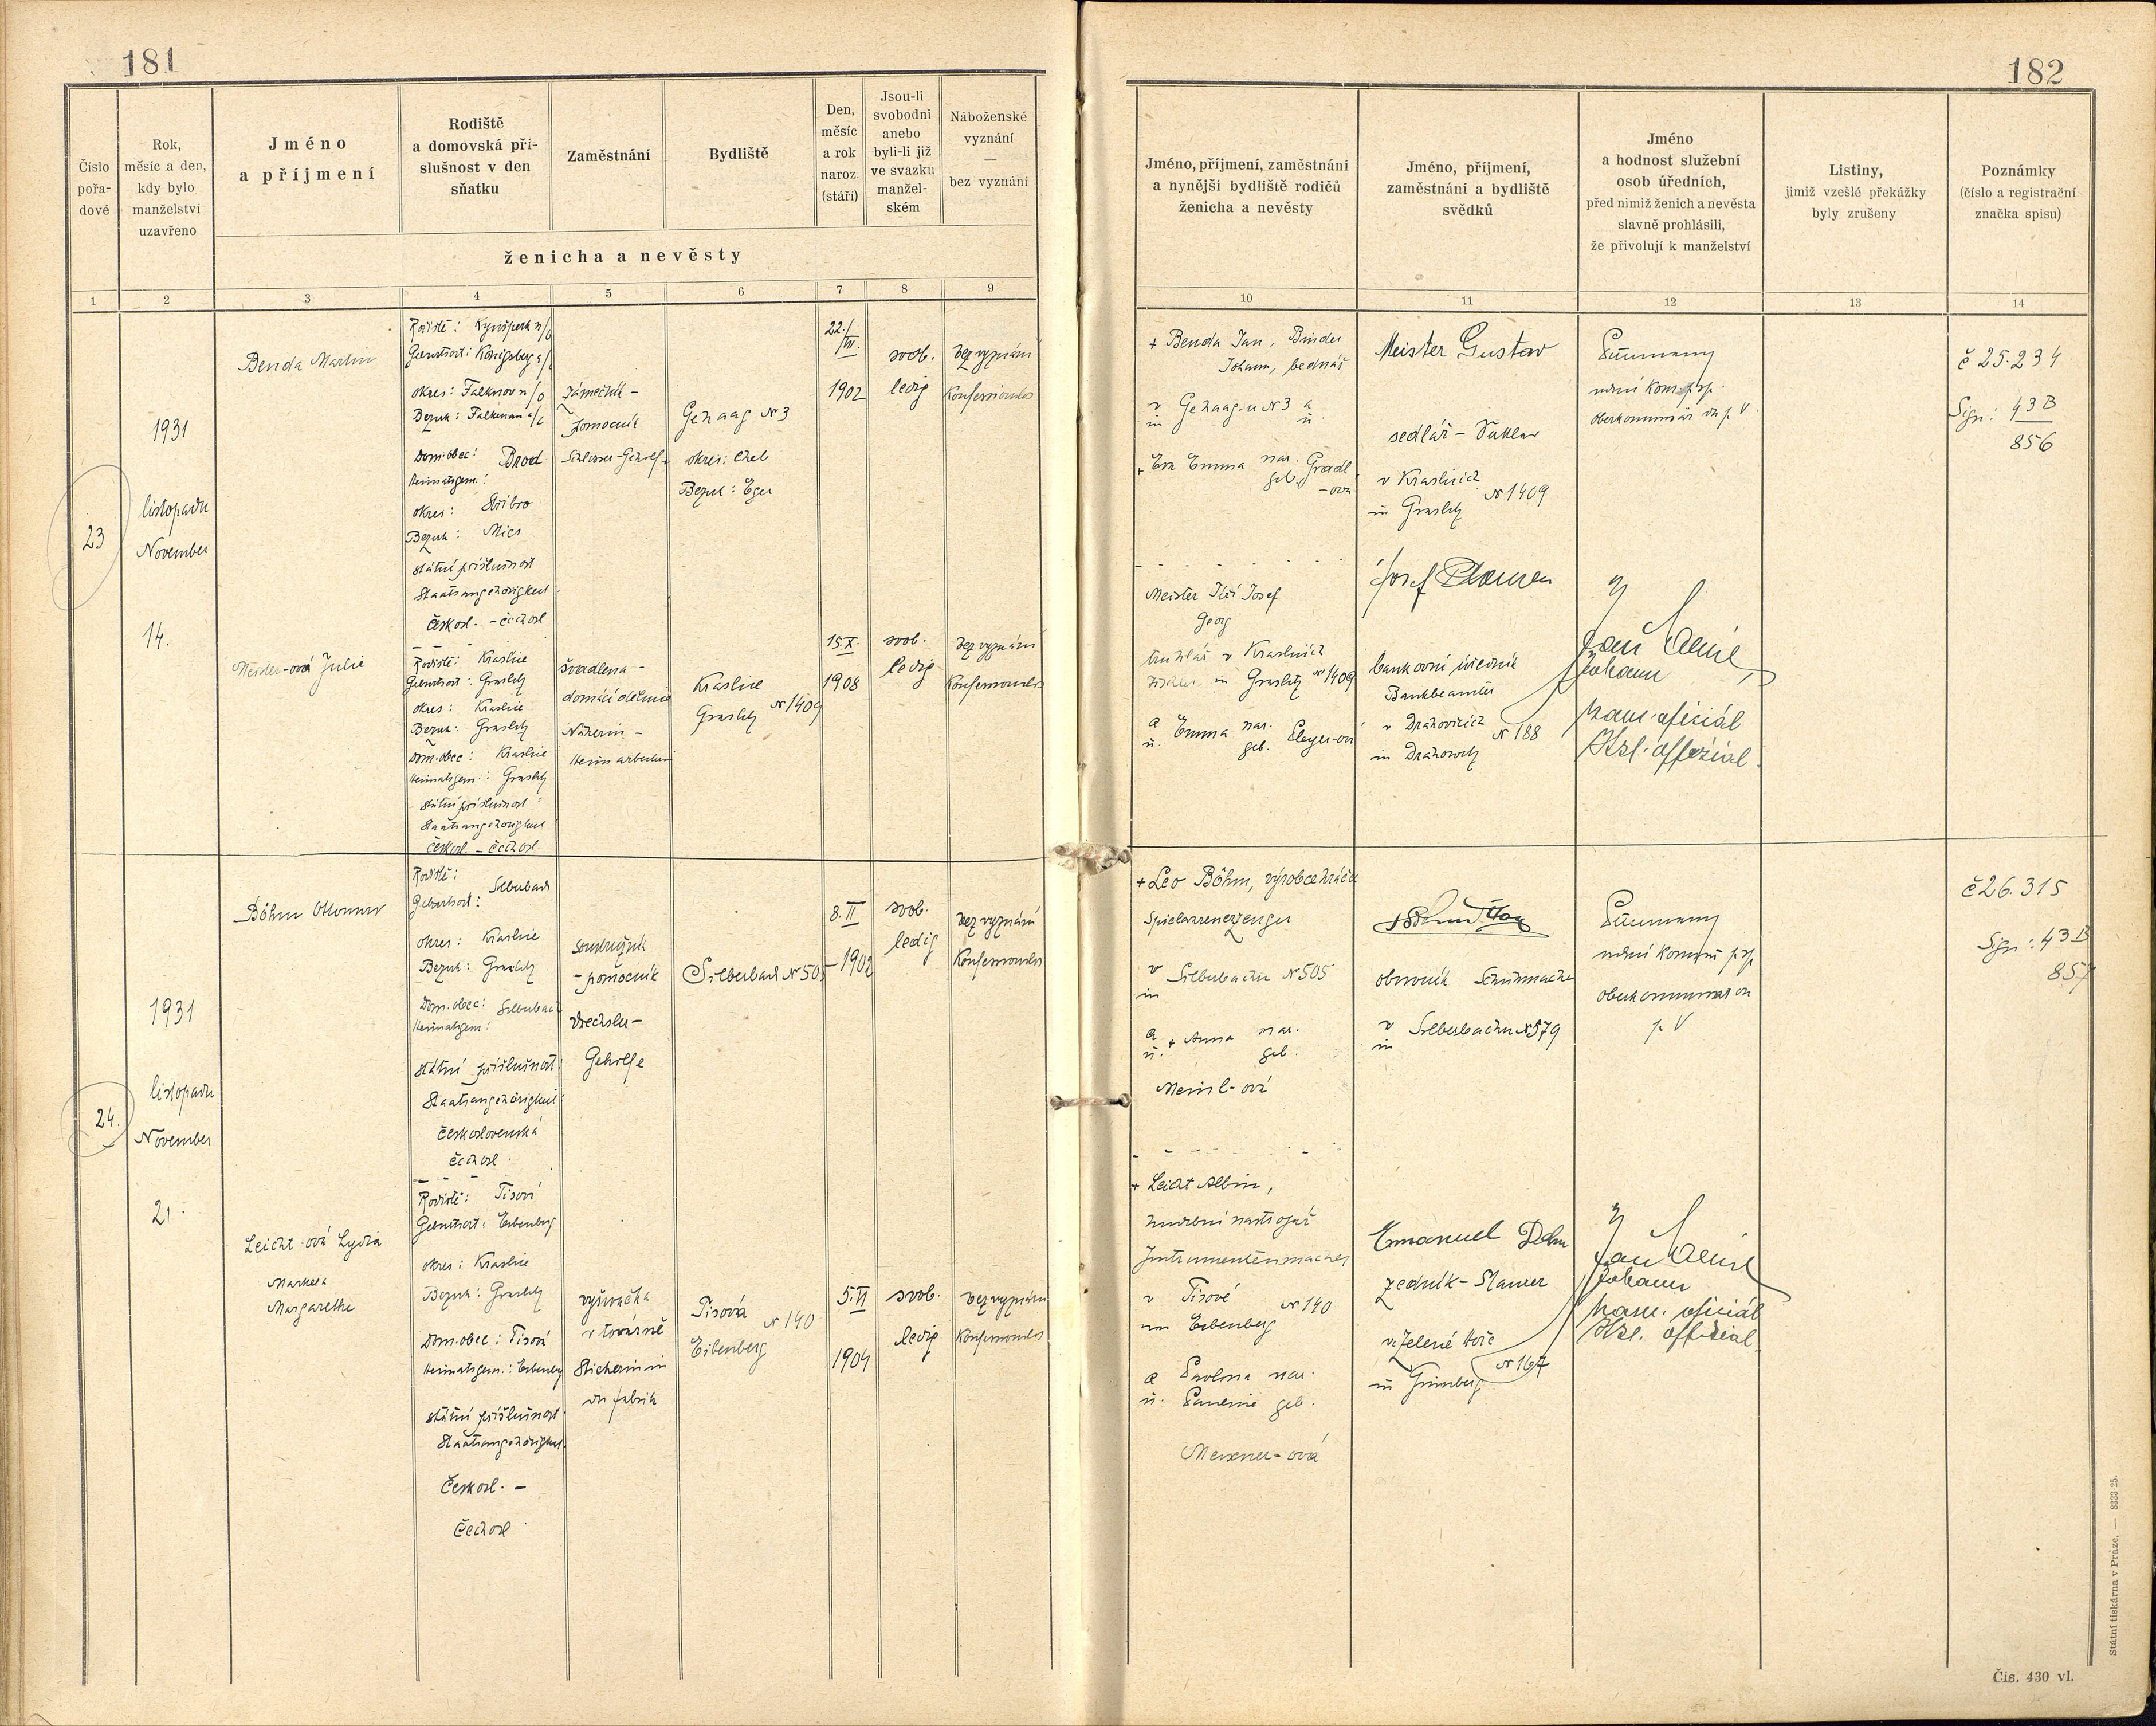 181
182
Číslo
pořa-
dové
Rok,
měsíc a den,
kdy bylo
manželství
uzavřeno
Jméno
a příjmení
Rodiště
a domovská pří-
slušnost v den
sňatku
Zaměstnání
Bydliště
Den,
měsíc
a rok
naroz.
(stáří)
Jsou-li
svobodni
anebo
byli-li již
ve svazku
manžel-
ském
Náboženské
vyznání
—
bez vyznání
ženicha a nevěsty
1 2 3 4 5 6 7 8 9
Jméno, příjmení, zaměstnání
a nynější bydliště rodičů
ženicha a nevěsty
Jméno, příjmení,
zaměstnání a bydliště
svědků
Jméno
a hodnost služební
osob úředních,
před nimiž ženich a nevěsta
slavně prohlásili,
že přivolují k manželství
Listiny,
jimiž vzešlé překážky
byly zrušeny
Poznámky
(číslo a registrační
značka spisu)
10 11 12 13 14
23
1931
listopadu
November
14.
Benda Martin
Rodiště: Kynšperk n/o
Geburtsort: Königsberg a/
okres: Falknov n/o
Bezirk: Falkenau a/
Dom. obec: Brod
Heimatsgem.:
okres: Stříbro
Bezirk: Mies
státní příslušnost
Staatsangehörigkeit
českosl. - čechosl
zámečník -
pomocník
Schlosser-Gehilfe
Gehaag № 3
okres: Cheb
Bezirk: Eger
22./
III.
1902
svob.
ledig
bez vyznání
Konfessionslos
Meister-ová Julie
Rodiště: Kraslice
Geburtsort: Graslitz
okres: Kraslice
Bezirk: Graslitz
Dom. obec: Kraslice
Heimatsgem.: Graslitz
státní příslušnost
Staatsangehörigkeit
českosl. - čechosl
švadlena -
domácí dělnice
Näherin -
Heimarbeiterin
Kraslice
Graslitz № 1409
15.X.
1908
svob.
ledig
bez vyznání
Konfessionslos
+ Benda Jan, Binder
Johann, bednář
v
in Gehaag-u № 3 a
u.
Emma nar.
geb. Gradl
-ová
Meister Jiří Josef
Georg
truhlář v Kraslicích
Tischler in Graslitz № 1409
a
u. Emma nar.
geb.
Meister Gustav
sedlář - Sattler
v Kraslicích
in Graslitz № 1409
Josef
bankovní úředník
Bankbeamter
v Drahovicích
in Drahowitz № 188
Jan
Johann
kanc. oficiál
Kzl. offizial
č 25.234
Sign.: 43 B
856
24.
1931
listopadu
November
21.
Böhm Ottomar
Rodiště:
Geburtsort: Silberbach
okres: Kraslice
Bezirk: Graslitz
Dom. obec: Silberbach
Heimatsgem:
státní příslušnost
Staatsangehörigkeit
československá
čechosl.
soustružník
- pomocník
Drechsler-
Gehilfe
Silberbach № 505
8.II
1902
svob.
ledig
bez vyznání
Konfessionslos
Leicht-ová Lydia
Marketa
Margarethe
Rodiště: Tisová
Geburtsort: Eibenberg
okres: Kraslice
Bezirk: Graslitz
Dom. obec: Tisová
Heimatsgem.: Eibenberg
státní příslušnost
Staatsangehörigkeit
Českosl. -
Čechosl
vyšívačka
v továrně
Stickerin in
der Fabrik
Tisová
Eibenberg № 140
5.VI
1904
svob.
ledig
bez vyznání
Konfessionslos
+ Leo Böhm, výrobce hraček
Spielwarenerzeuger
v
in Silberbachu № 505
a
u. + Anna nar.
geb.
Meinl-ová
+ Leicht Albin,
hudební nástrojař
Instrumentenmacher
v Tisové
in Eibenberg № 140
a
u. nar.
geb.
obuvník Schuhmacher
v
in Silberbachu № 579
Emanuel
zedník - Maurer
v Zelené Hoře
in Grünberg № 167
Jan
Johann
kanc. oficiál
Kzl. offizial
č 26.315
Sign.: 43 B
857
Státní tiskárna v Praze. — 8333 25.
Čís. 430 vl.